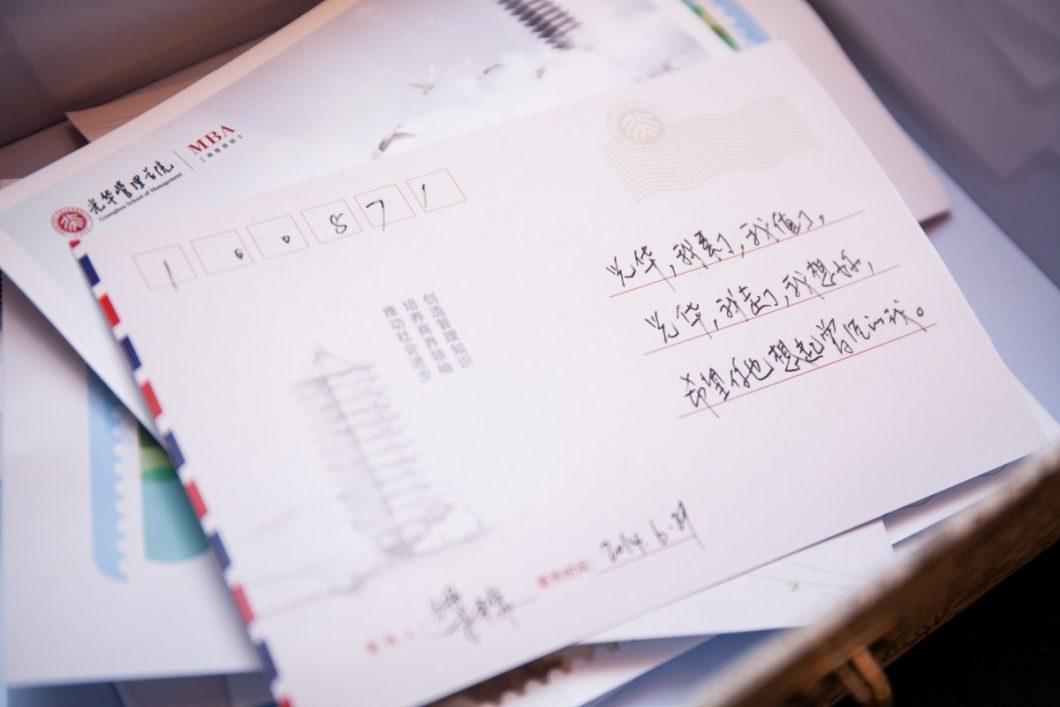 光华管理学院
Guanghua School of Management
MBA
工商管理硕士
1 0 0 8 7 1
创造管理知识
培养商界领袖
推动社会进步
光华,我来了,我值了,
光华,我走了,我想
希望你也想起曾经的我。
2014.6